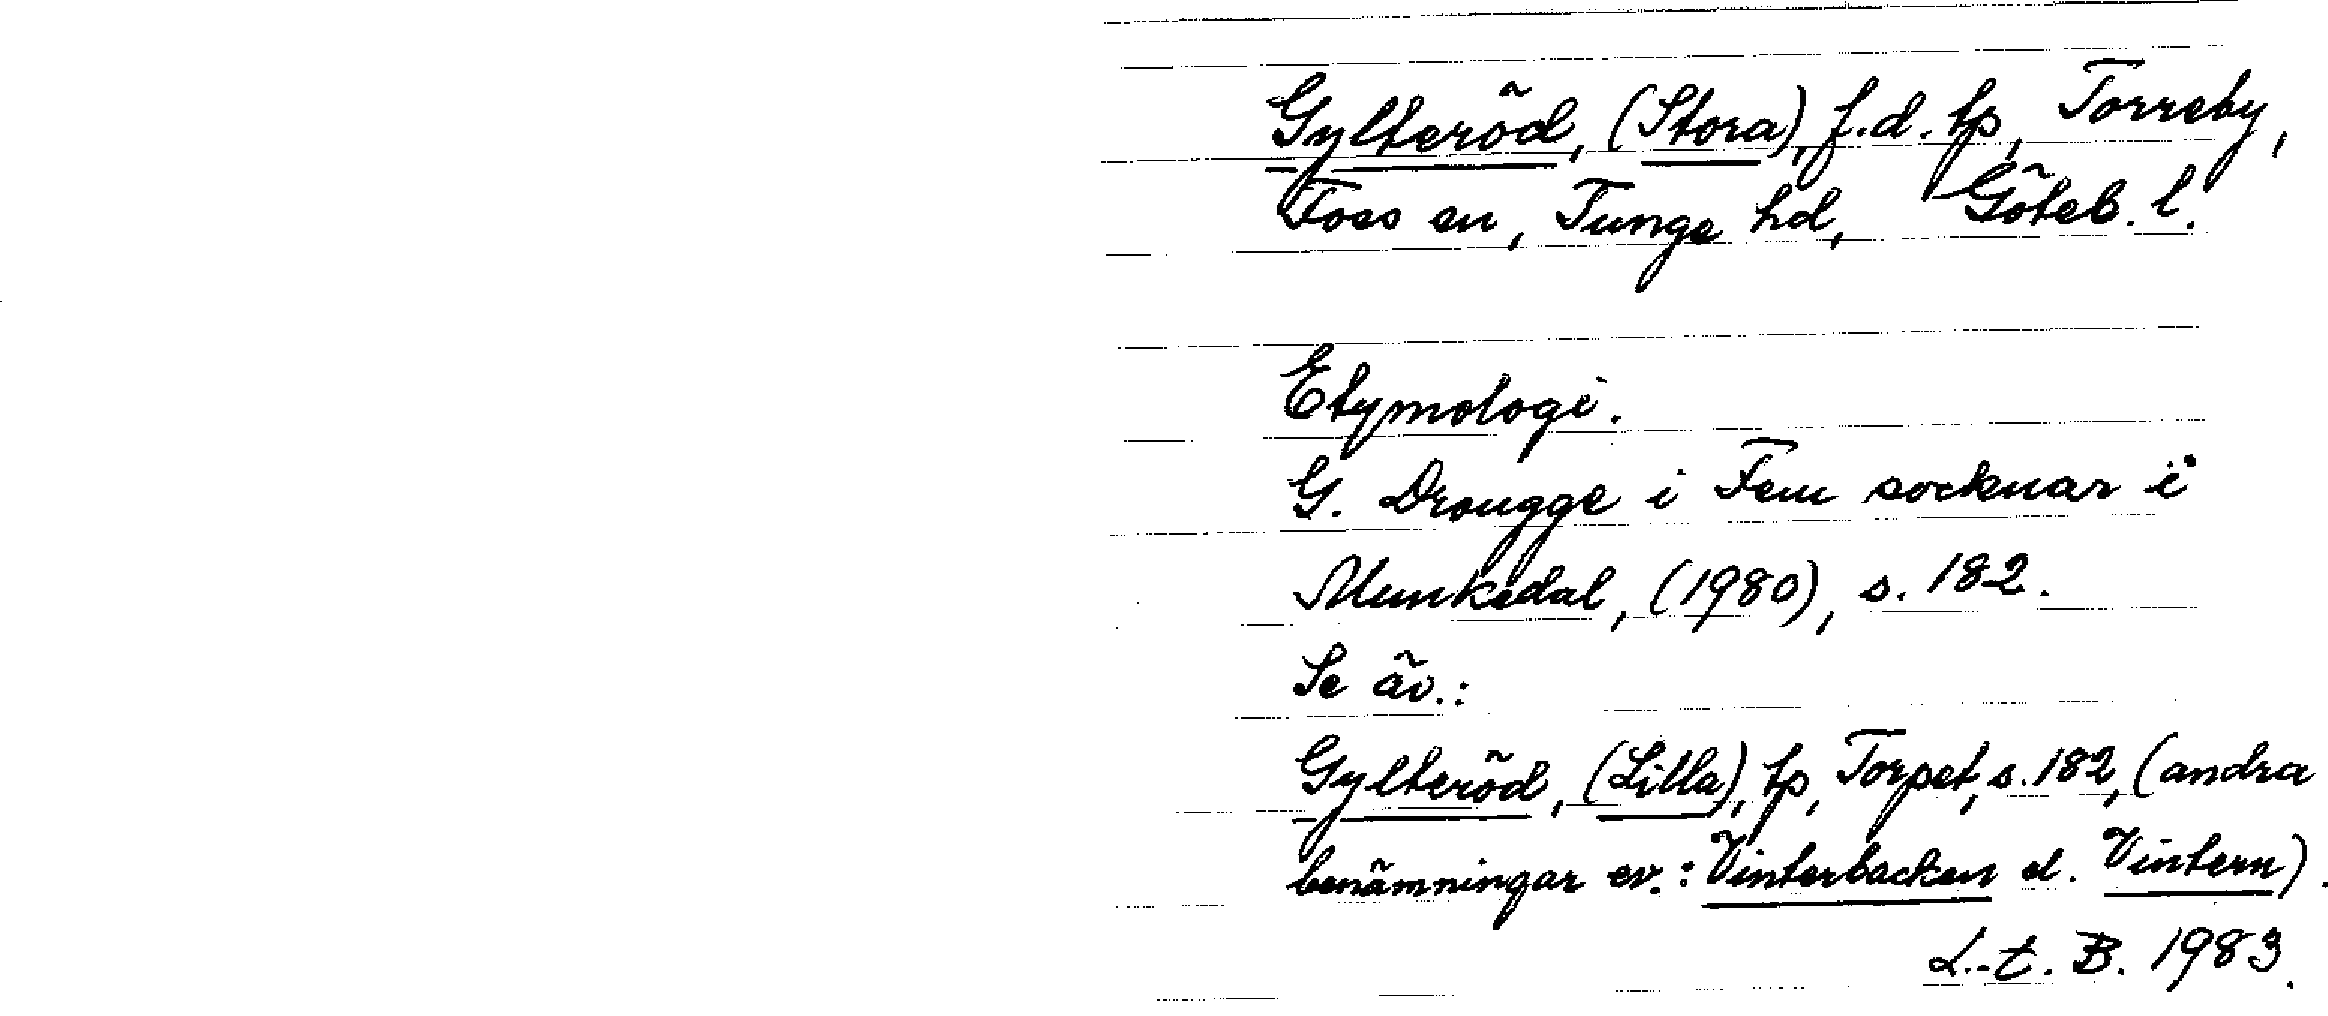 Gylteröd, (Stora), f.d. tp, Torreby,
Foss sn, Tunge hd, Göteb. l.
Etymologi.
G. Drougge i Fem socknar i
Munkedal, (1980), s. 182.
Se äv.:
Gylteröd, (Lilla), tp, Torpet, s. 182, (andra
benämningar ev.: Vinterbacken el. Vintern).
L.-t. B. 1983.